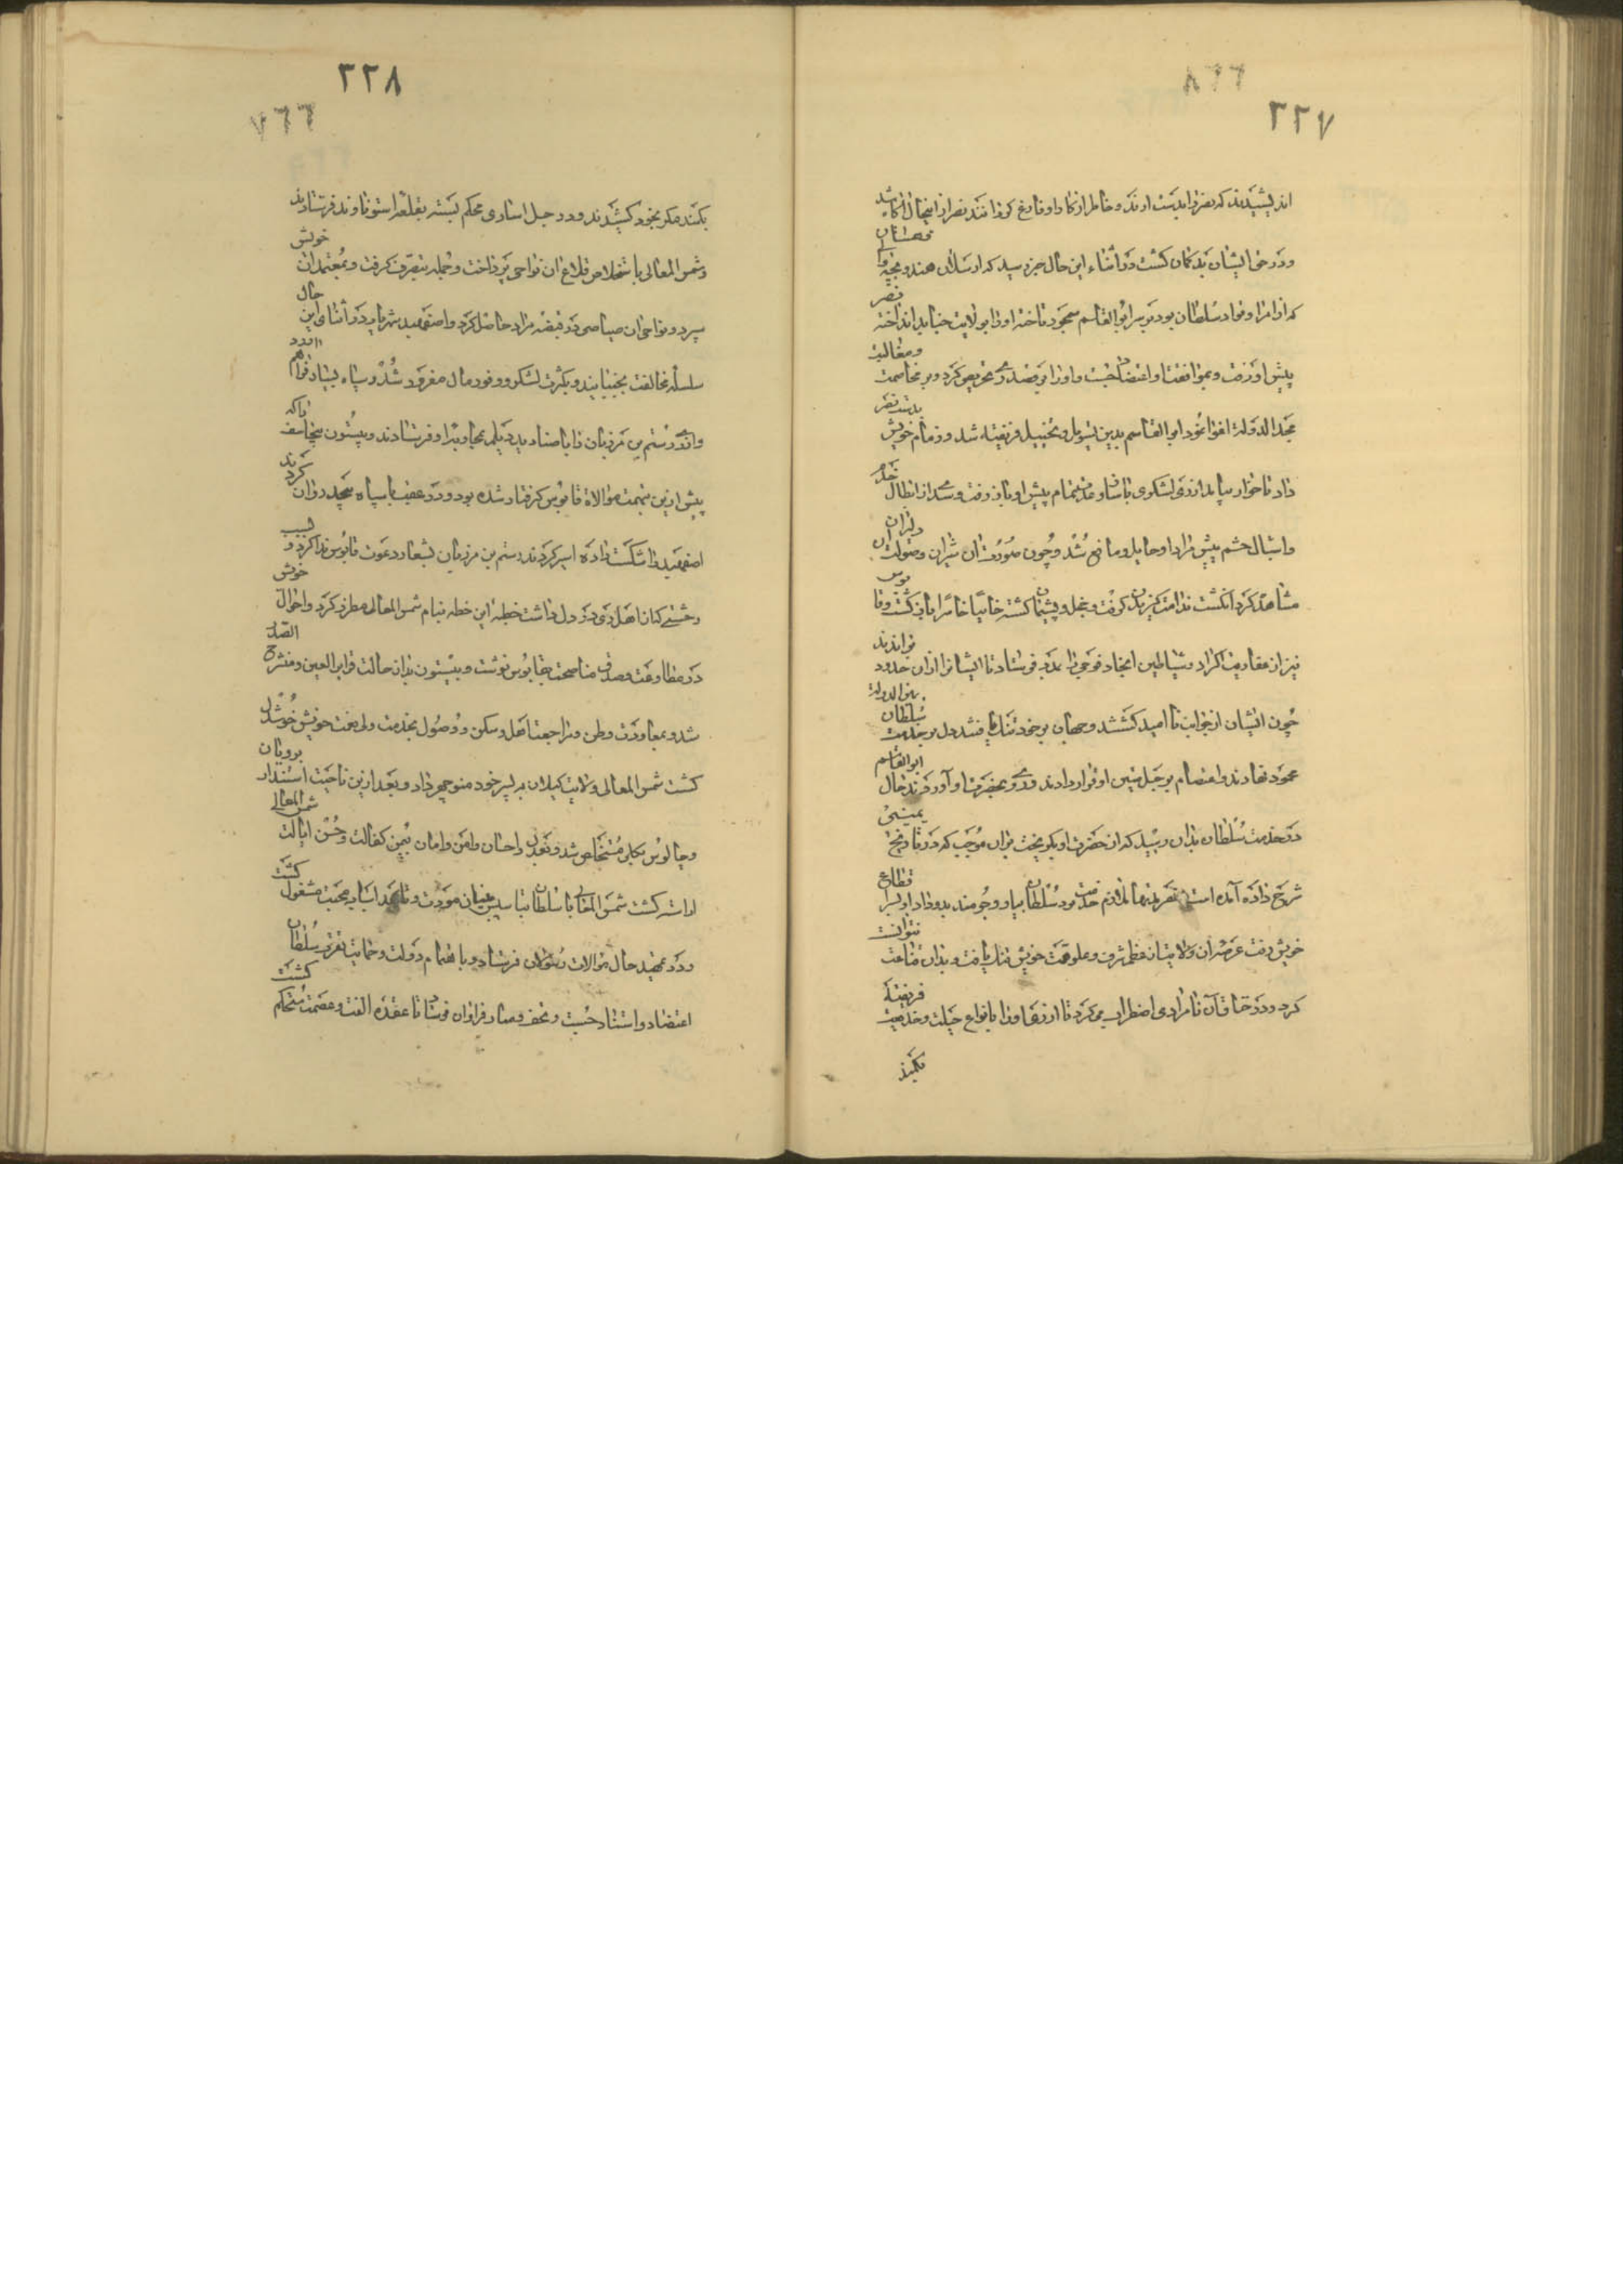 ٢٢٧
اندیشیدند که نصر را بدست آرند و خاطر از کار او فارغ کردانند نصر از این حال آکاه شد
و در حق ایشان بدکمان کشت و در اثناء این حال خبر رسید که ارسلان هندو بچه والی قهستان
که از امرا و قواد سلطان بود بر سر ابو القاسم سیمجور تاخته او را بولایت جنابد انداخته نصر
پیش او رفت و بموافقت او اعتضاد جست و او را بر قصد ری تحریض کرد و بر مخاصمت و مغالبت
مجد الدوله اغوا نمود ابو القاسم بدین تسویل و تخییل فریفته شد و زمام خویش بدست نصر
داد تا خوار بیامد از ری لشکری باستقبال بتمام پیش او باز رفت و سدی از ابطال
و اشبال حشم پیش مراد او حایل و مانع شد و چون سورت آن شیران و صولت آن دلیران
مشاهده کرد انکشت ندامت کزیدن کرفت و خجل و پشیمان کشته خایبا خاسرا باز کشت و قابوس
نیز از عفاریت اکراد و شیاطین انجاد فوجی را بدو فرستاد تا ایشانرا از آن حدود براندند
چون ایشان از جوانب نا امید کشتند و جهان بر خود تنک یافتند دل بر خدمت سلطان یمین الدوله
محمود نهادند و اعتصام بر حبل متین او قرار دادند و روی بحضرت او آوردند حال ابو القاسم
در خدمت سلطان بدان رسید که از حضرت او بکریخت بر آن موجب که در تاریخ یمینی
شرح داده آمده است و نصر مدتها ملازم خدمت سلطان بود بیار و جومند بدو داد او بسر اقطاع
خویش رفت عرصه آن ولایت از عظم شرف و علو همت خویش تنک یافت و بدان قناعت نتوانست
کرد و در خناق آن نامرادی اضطراب می کرد تا از ری او را بانواع حیلت و خدیعت فریفته
بکمند
٢٢٨
بکمند مکر بخود کشیدند و در حبل اساری محکم بسته بقلعه استوناوند فرستادند
و شمس المعالی باستخلاص قلاع آن نواحی پرداخت و جمله بتصرف کرفت و بمعتمدان خویش
سپرد و نواحی آن صیاصی در قبضه مراد حاصل کرد و اصفهبد شهریار در اثنای این حال
سلسله مخالفت بجنبانید و بکثرت لشکر و وفور مال مغرور شد و سپاه بسیار فراهم آورد
و از ری رستم بن مرزبان را با صنادید دیلم بمحاربت او فرستادند و بیستون بیجاسف را که
پیش ازین بتهمت موالاة قابوس کرفتار شده بود و در عقب با سپاه بیحد روان کردند
اصفهبد را شکست داده اسیر کردند رستم بن مرزبان بشعار دعوت قابوس ندا کرد و بسبب
وحشتی که از اهل ری در دل داشت خطبه این خطه بنام شمس المعالی مطرز کرد و احوال خویش
در مطاوعت و صدق مناصحت بقابوس نوشت و بیستون بدان حالت قریر العین و منشرح الصدر
شد و بمعاودت وطن و مراجعت اهل و سکن و وصول بخدمت ولی نعمت خویش خوشدل
کشت شمس المعالی ولایت کیلان بپسر خود منوچهر داد و بعد ازین ناحیت استندار برویان
و چالوس بکلی مستخلص شد و بعدل و احسان و امن و امان بیمن کفالت و حسن ایالت شمس المعالی
اراسته کشت شمس المعالی با سلطان بتاسیس بنیان مودت و تمهید اسباب محبت مشغول کشت
و در تمهید حال موالات رسولان فرستاد و باهتمام دولت و حمایت نصرت سلطان
اعتضاد و استناد جست و تحف و مبار فراوان فرستاد تا عقده الفت و عصمت مستحکم کشت